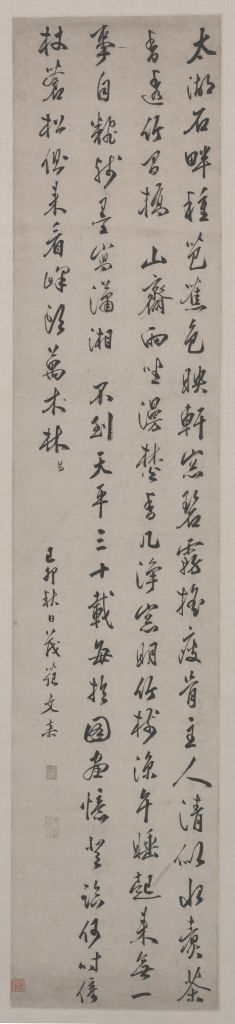 太湖石畔種芭蕉色映軒窓碧霧搖瘦骨主人清似水煮茶
香透竹間橋 山齋雨坐漫焚香几淨窓明竹樹涼午睡起来無一
事自殘墨寫瀟湘 不到天平三十載每於圖畫憶登臨何時倚
杖蒼松来看峰頭萬木林
己卯秋日茂苑文嘉